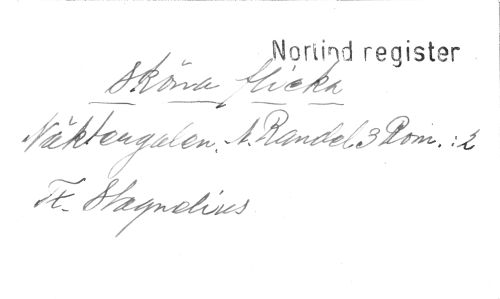 Norlind register
Sköna flicka
Näktergalen. A. Randel 3 Rom. : 2
T. Stagnelius